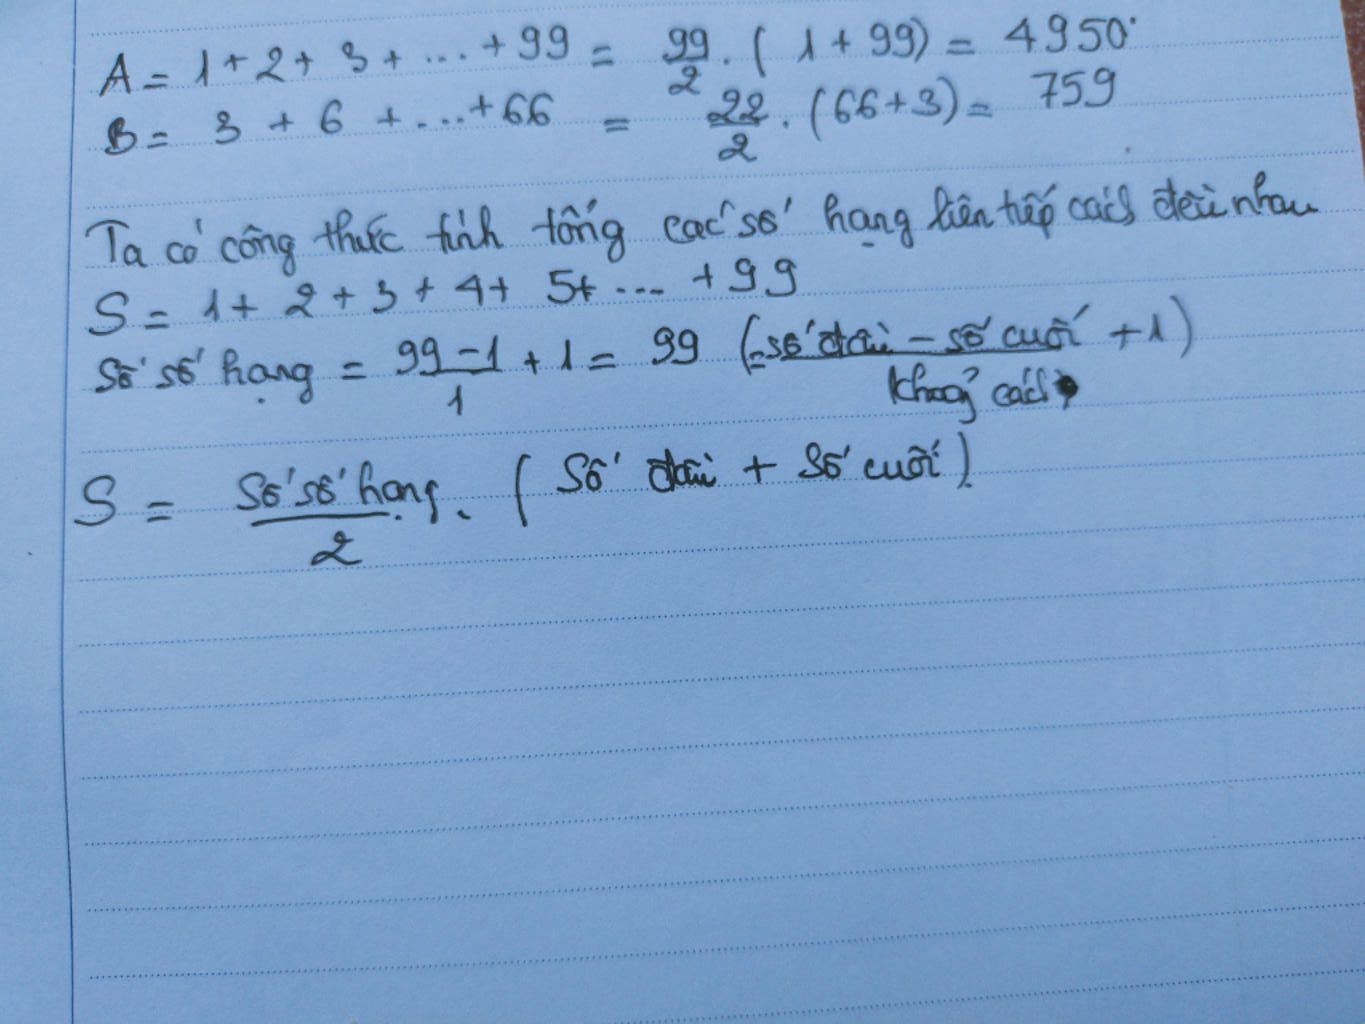 A = 1 + 2 + 3 + ... + 99 = 99/2 . ( 1 + 99) = 4950
B = 3 + 6 + ... + 66 = 22/2 . (66+3) = 759
Ta có công thức tính tổng các số hạng liên tiếp cách đều nhau
S = 1 + 2 + 3 + 4 + 5 + ... + 99
Số số hạng = 99 - 1 / 1 + 1 = 99 (= số đầu - số cuối / khoảng cách + 1)
S = Số số hạng / 2 . ( Số đầu + Số cuối ).